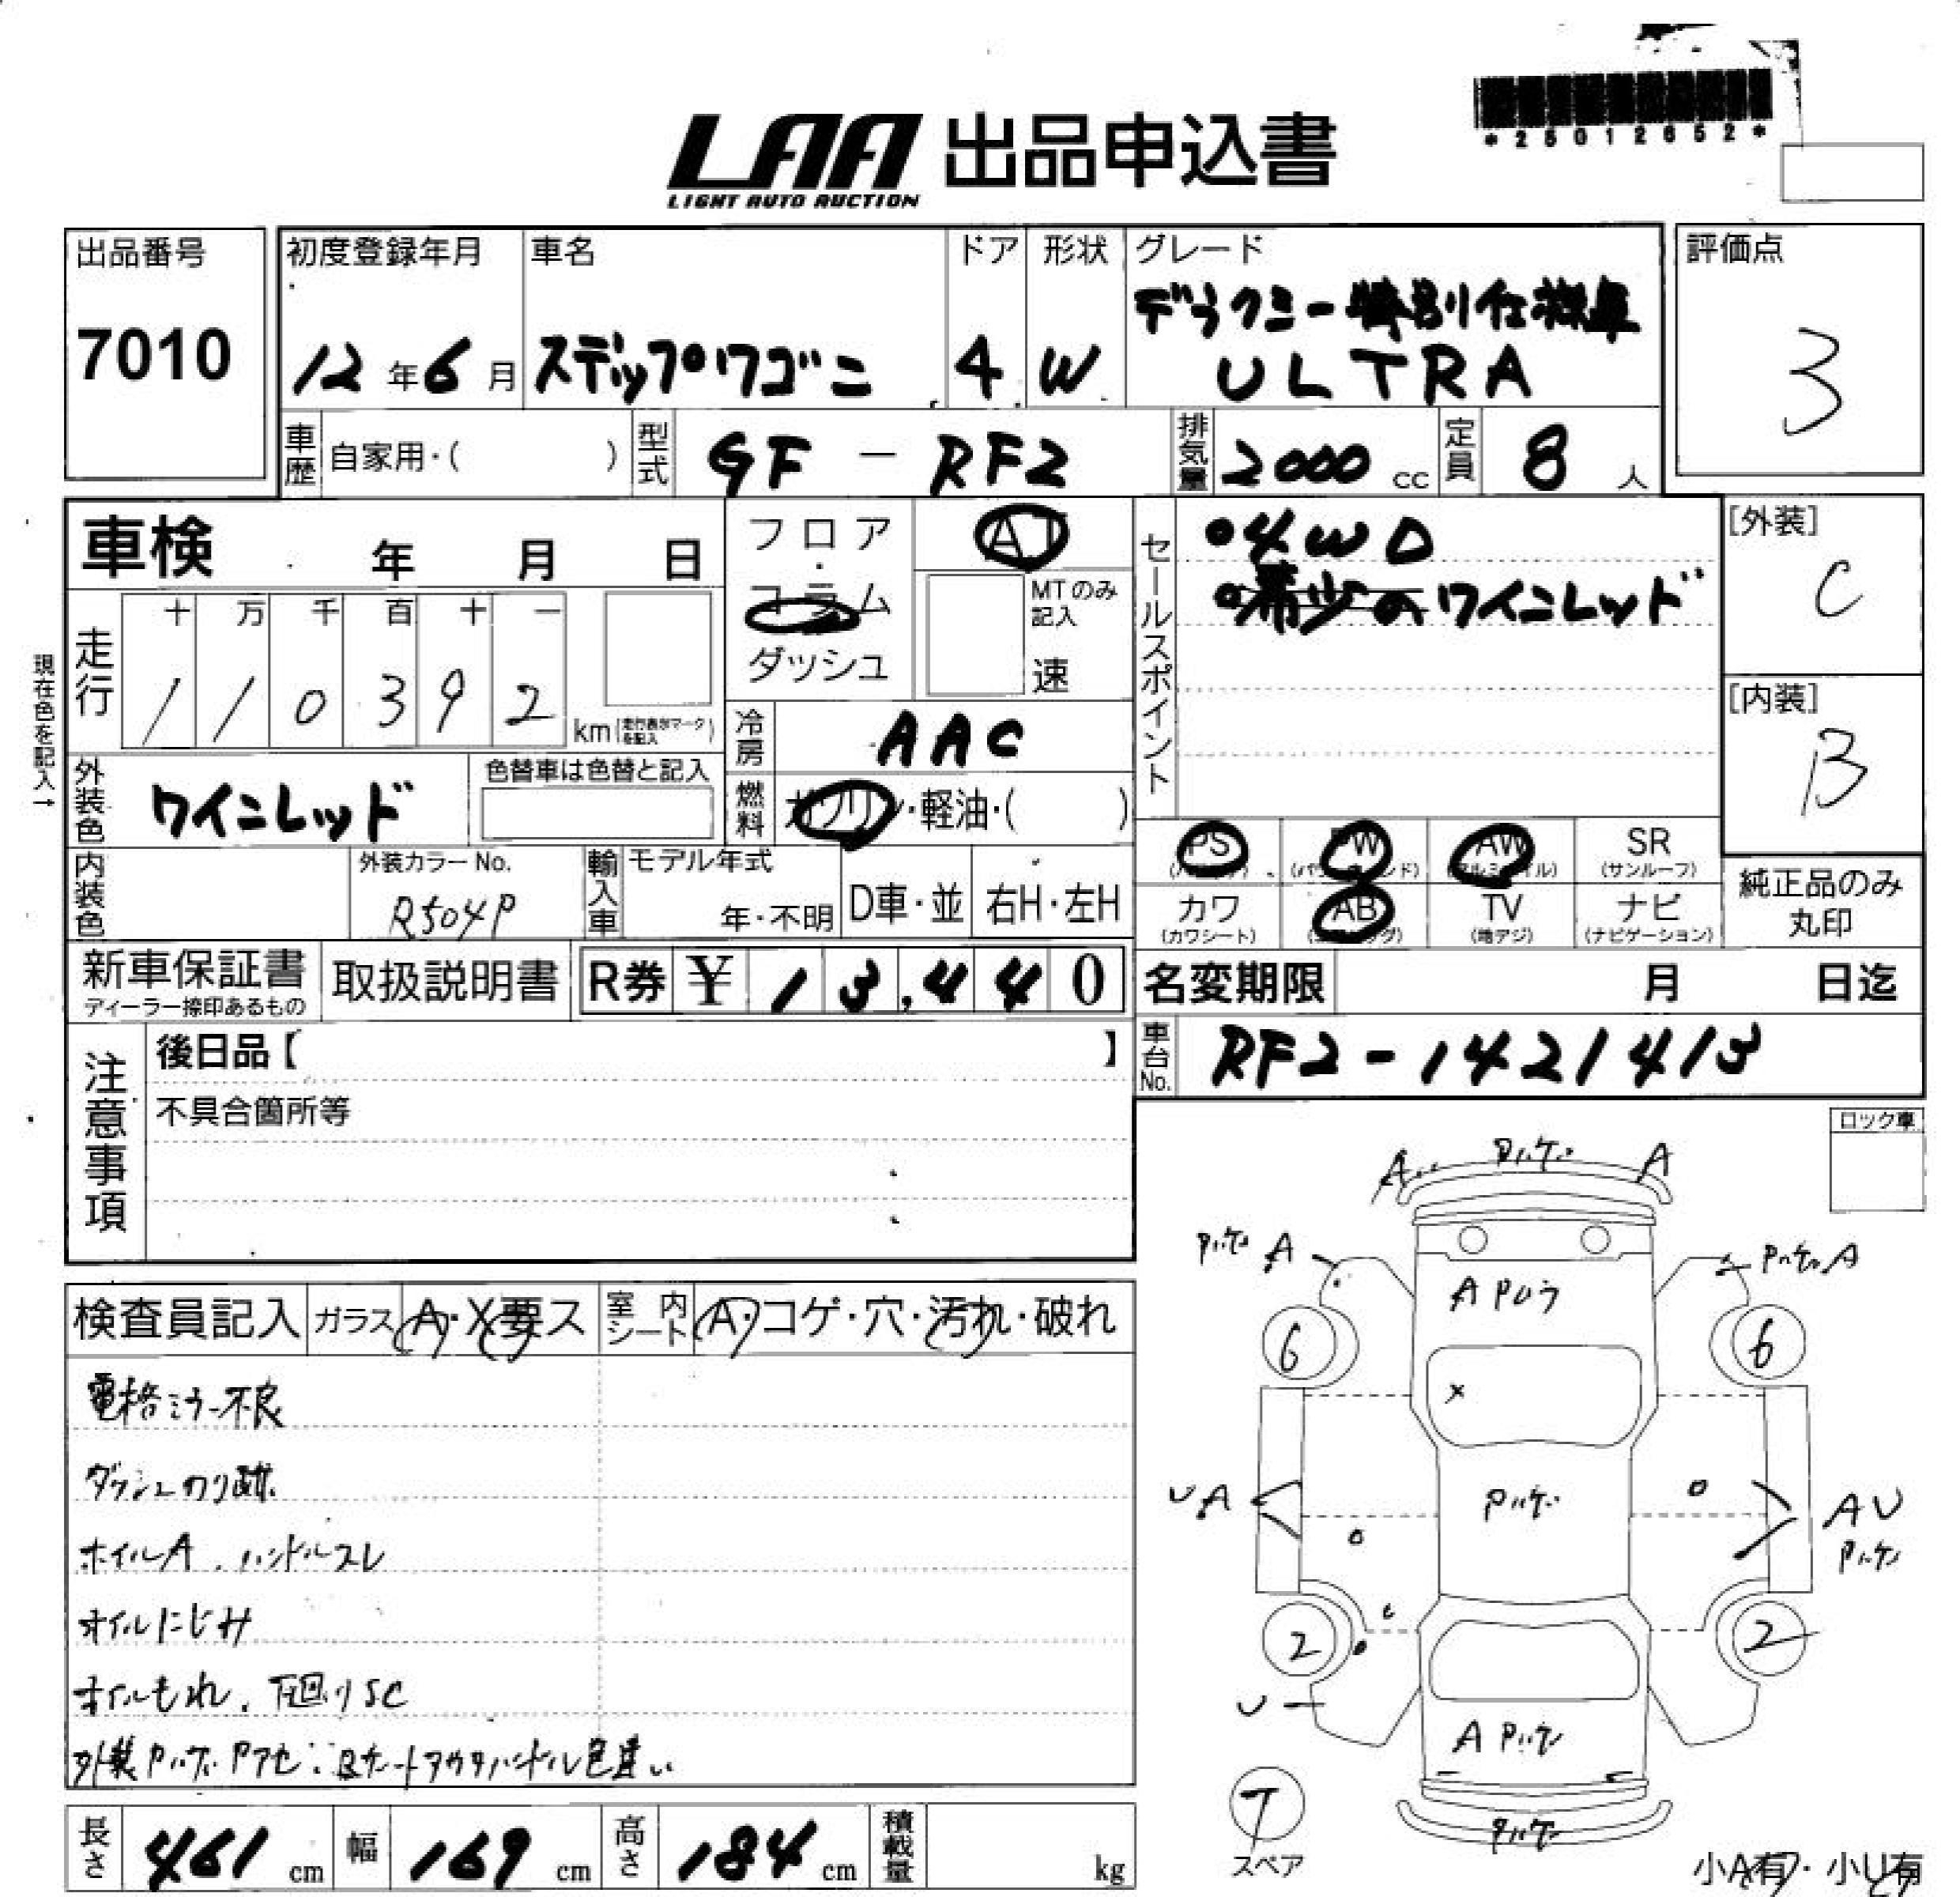 *25012652*
LAA 出品申込書
LIGHT AUTO AUCTION
出品番号
7010
初度登録年月
12年6月
車名
ステップワゴン
ドア
4
形状
W
グレード
デラクシー特別仕様車
ULTRA
評価点
3
車歴 自家用・( )
型式 GF-RF2
排気量 2000 cc
定員 8 人
車検 年 月 日
フロア・コラム ダッシュ
AT
MTのみ記入
速
セールスポイント
●4WD
●希少のワインレッド
[外装]
C
[内装]
B
現在色を記入→
走行
十 万 千 百 十 一
1 1 0 3 9 2 km (走行表示マークを記入)
冷房 AAC
外装色 ワインレッド
色替車は色替と記入
燃料 ガソリン・軽油・( )
PS AW SR
(サンルーフ)
内装色
外装カラーNo.
R504P
輸入車
モデル年式
年・不明
D車・並
右H・左H
カワ AB TV ナビ
(カワシート) (地デジ) (ナビゲーション)
純正品のみ
丸印
新車保証書
ディーラー捺印あるもの
取扱説明書
R券 ¥13,440
名変期限 月 日迄
車台No. RF2-1421413
注意事項
後日品【 】
不具合箇所等
ロック車
検査員記入 ガラス A・X要ス
室内シート A・コゲ・穴・汚れ・破れ
電格ミラー不良
ダッシュのり跡
ホイルA、ハンドルスレ
オイルにじみ
オイルもれ、下回りSC
外装Pハゲ、Pアセ
色違い
A Pハゲ A
Pハゲ A
Pハゲ A
A P
6 6
X
UA
Pハゲ
AU
Pハゲ
2 2
U
A Pハゲ
T
スペア
長さ 461 cm
幅 169 cm
高さ 184 cm
積載量 kg
小A有・小U有